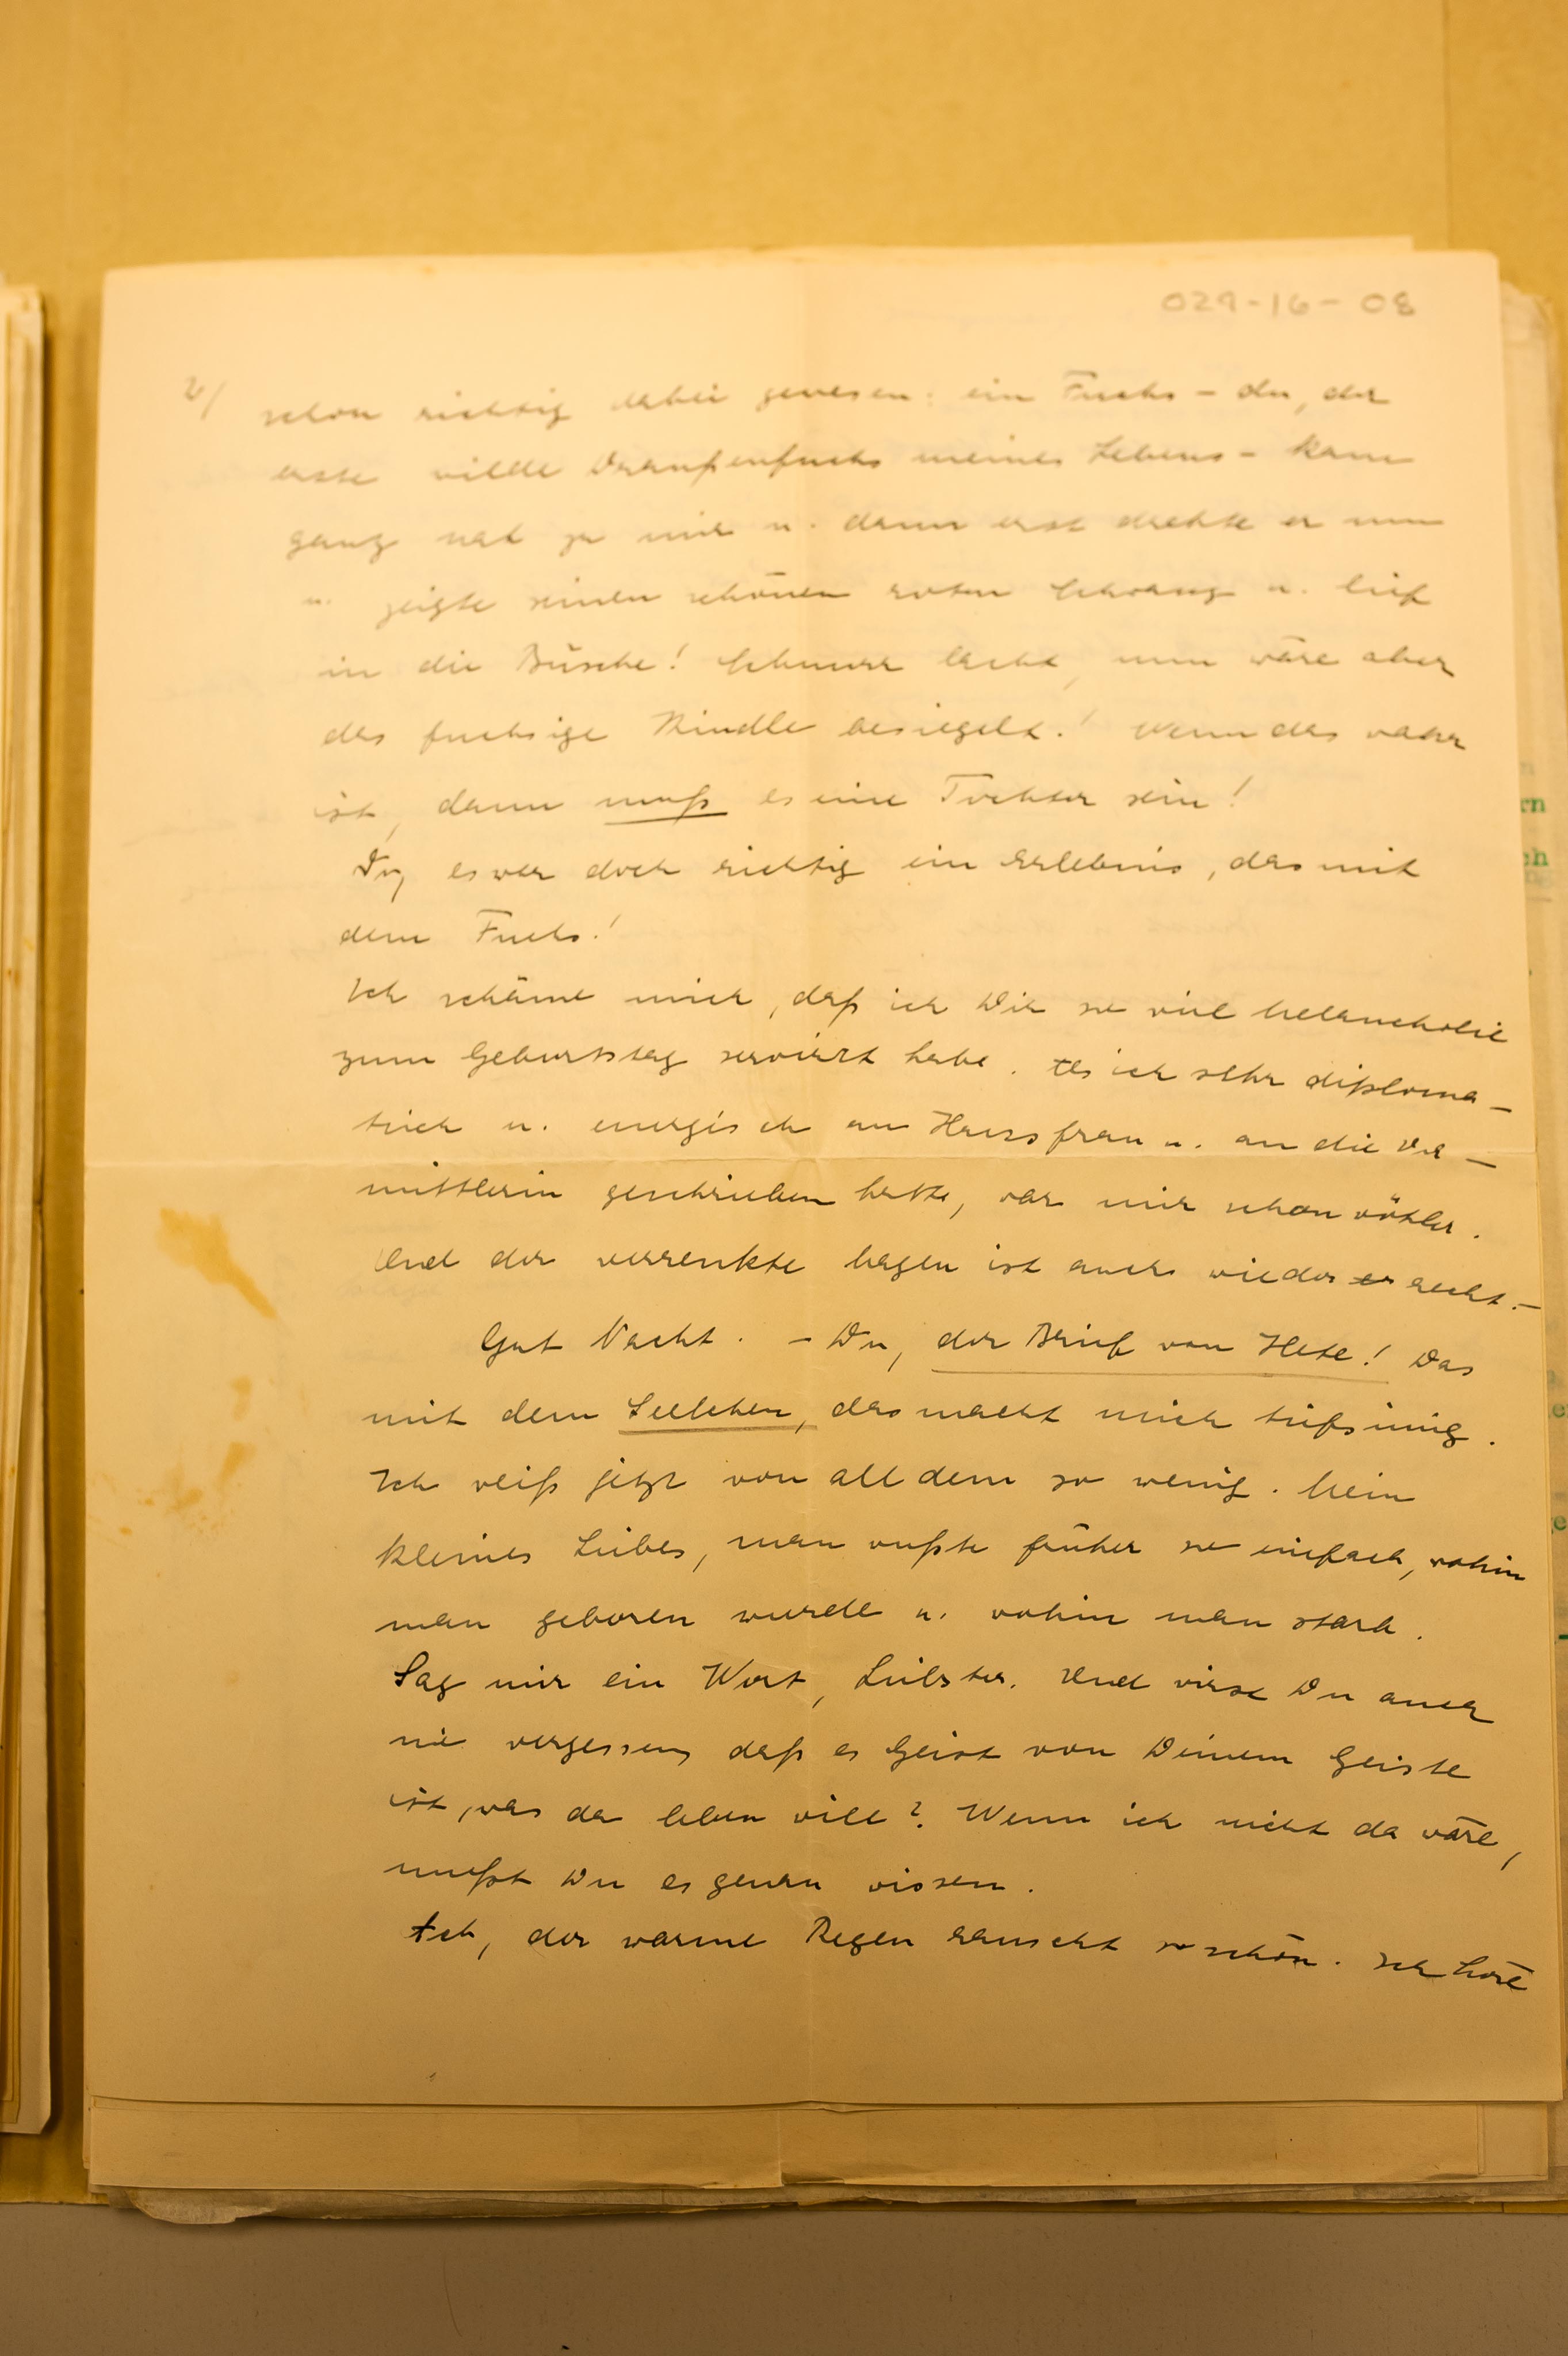 029-16-08
2/ schon richtig dabei gewesen: ein Fuchs – du, der
erste wilde Draußenfuchs meines Lebens – kam
ganz nah zu mir u. dann erst drehte er um
u. zeigte seinen schönen roten Schwanz u. lief
in die Büsche! Schnurr lacht, nun wäre aber
das fuchsige Kindle besiegelt! Wenn das wahr
ist, dann muß es eine Tochter sein!
Du, es war doch richtig ein Erlebnis, das mit
dem Fuchs!
Ich schäme mich, daß ich Dir so viel Melancholie
zum Geburtstag serviert habe. Als ich sehr diploma-
tisch u. energisch an Hausfrau u. an die Ver-
mittlerin geschrieben hatte, war mir schon wöhler.
Und der verrenkte Magen ist auch wieder er recht. –
Gut Nacht. – Du, der Brief von Hete! Das
mit dem Seelchen, das macht mich tiefsinnig.
Ich weiß jetzt von all dem so wenig. Mein
kleines Liebes, man wußte früher so einfach, wohin
man geboren wurde u. wohin man starb.
Sag mir ein Wort, Liebster. Und wirst Du auch
nie vergessen, daß es Geist von Deinem Geiste
ist, was da leben will? Wenn ich nicht da wäre,
mußt Du es genau wissen.
Ach, der warme Regen rauscht so schön. Ich höre